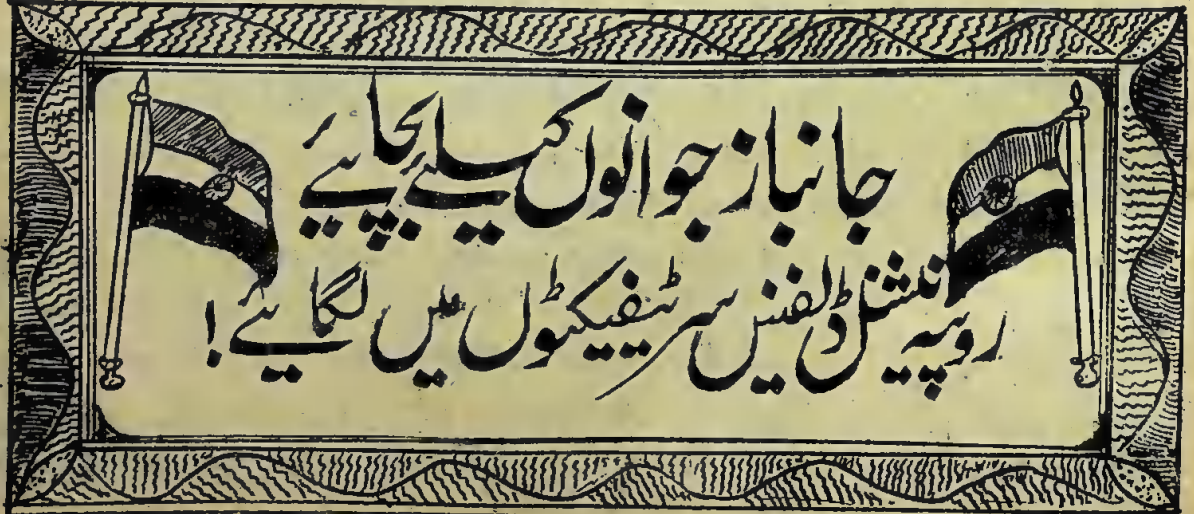 جانباز جوانوں کیلئے بچایئے
روپیہ نیشنل ڈلفنس سرٹیفیکیٹوں میں لگایئے!